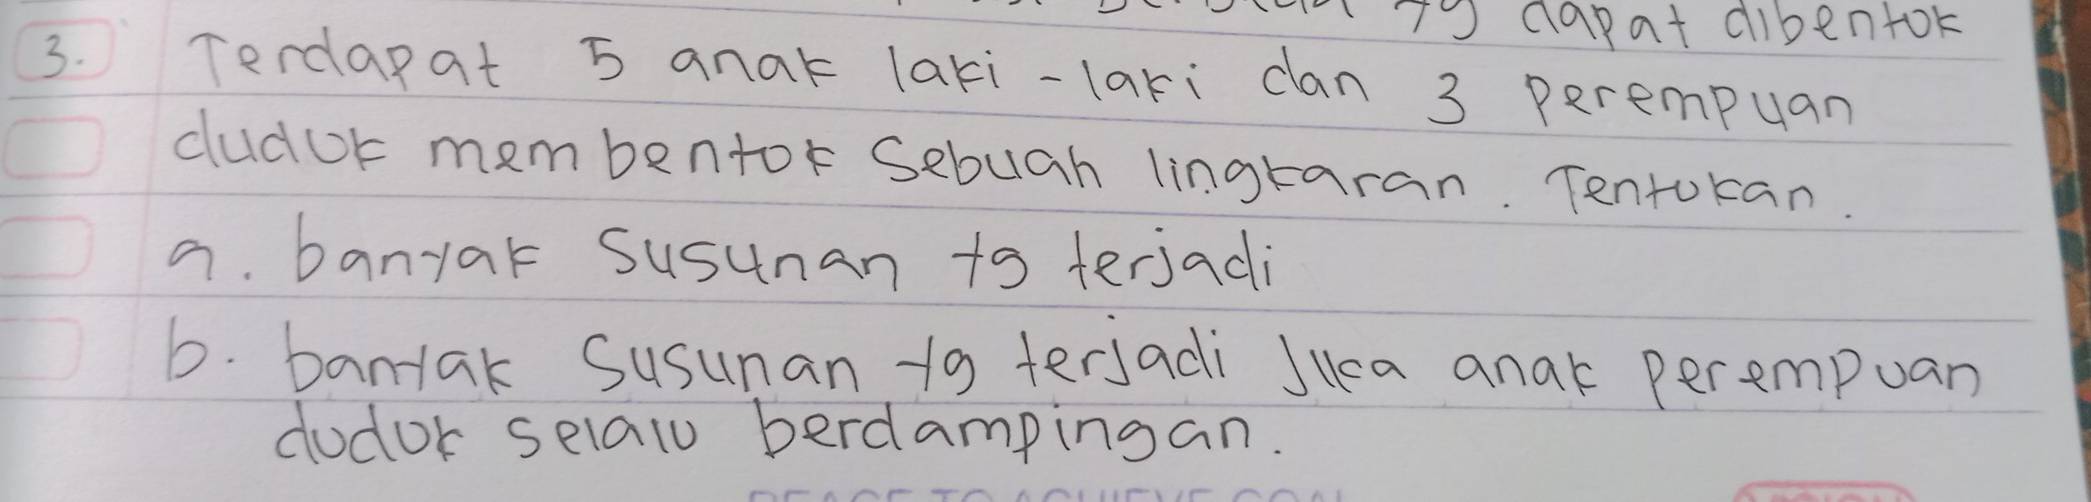 yg dapat dibentuk
3. Terdapat 5 anak laki-laki dan 3 perempuan
duduk membentuk sebuah lingkaran. Tentukan.
a. banyak susunan yg terjadi
b. banyak susunan yg terjadi jika anak perempuan
duduk selalu berdampingan.